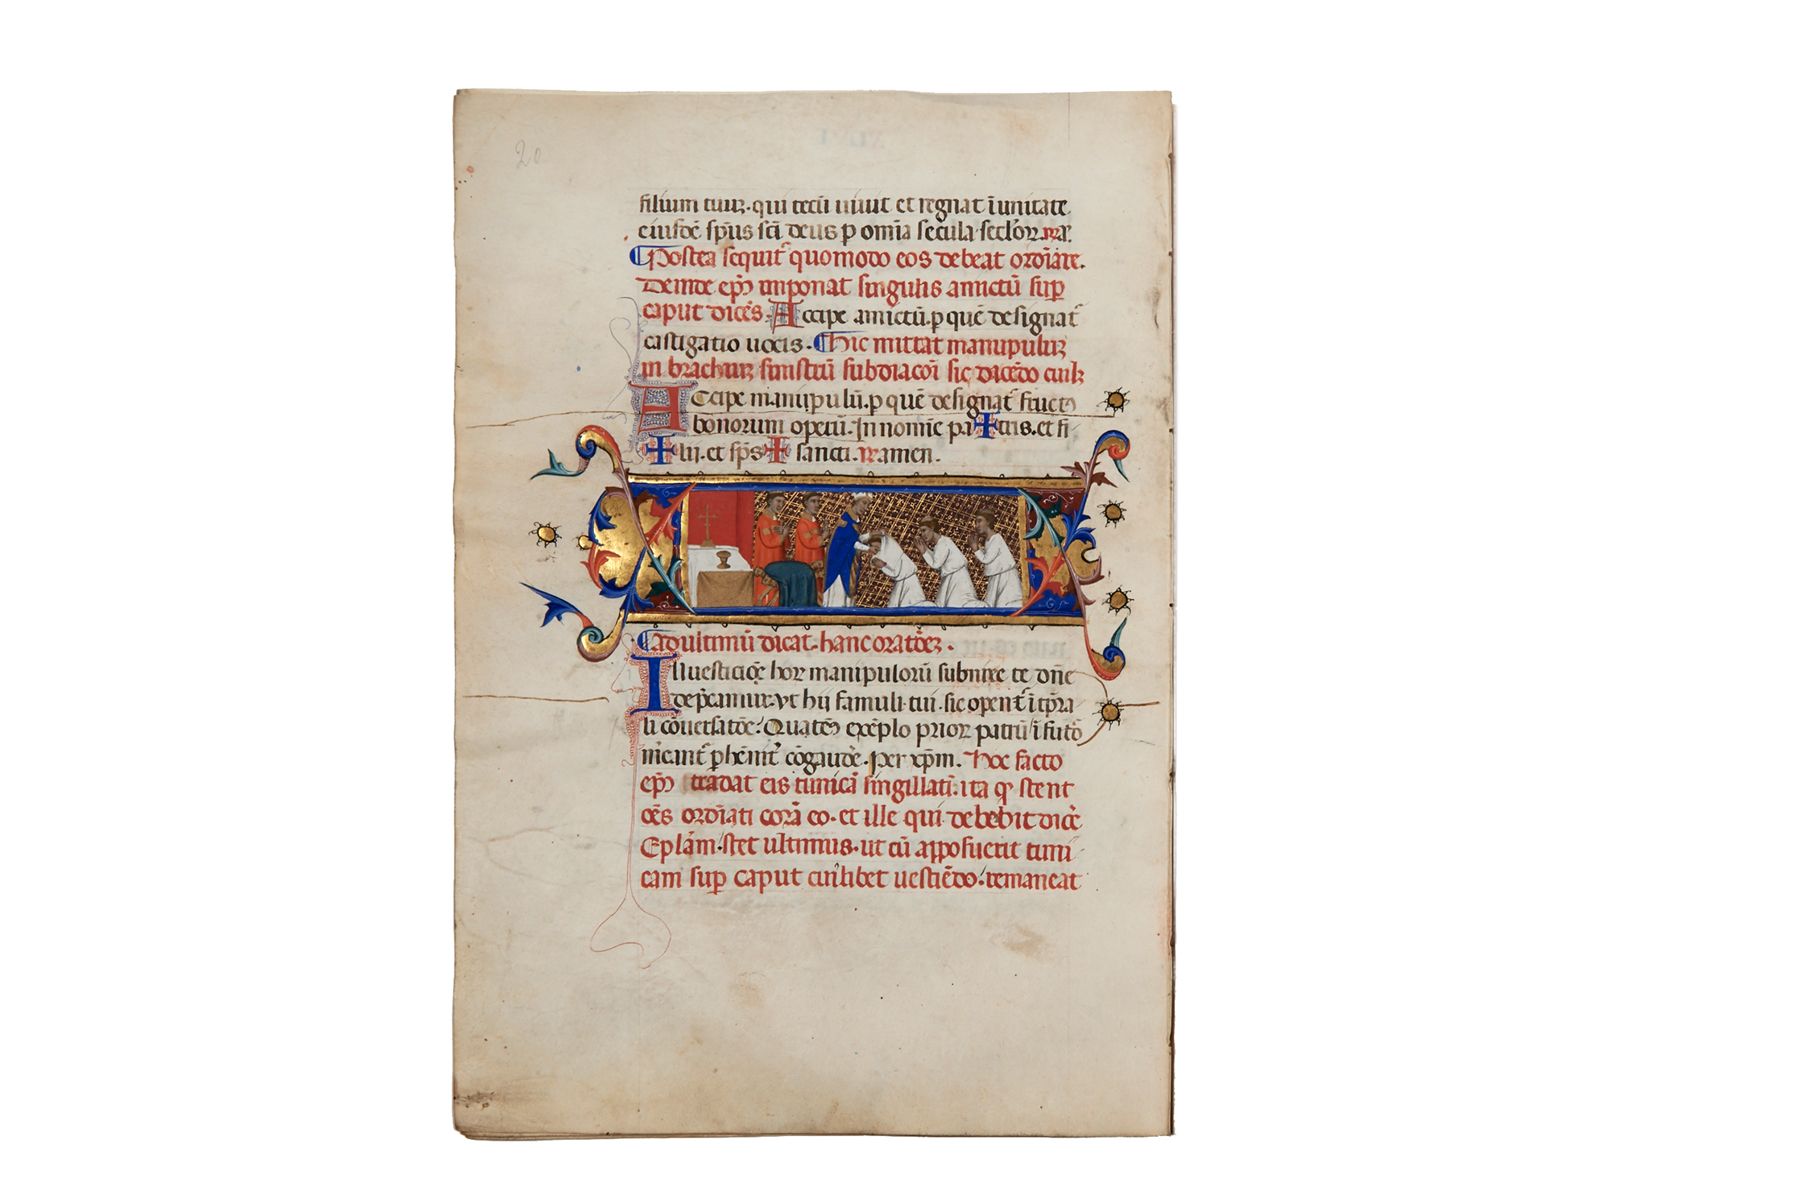 20
filium tuuȝ. qui tecū uiuit et regnat ī unitate
eiusdē sp̄us sc̄i deus p om̄ia secula sc̄lorꝝ. ꝶa.
Postea sequit᷒ quomodo eos debeat ordīare.
Deinde ep̄s imponat singulis amictū sup
caput dicēs. Accipe amictū. p quē designat᷒
castigatio uocis. Hic mittat manipuluȝ
in brachiuȝ sinistrū subdiaconi sic dicēdo cuilȝ
Accipe manipulū. p quē designat᷒ fructꝰ
bonorum operū. In nomīe pa✠tris. et fi
✠lii. et sp̄s ✠ sancti. ꝶ amen.
Ad ultimū dicat. hanc oratōeȝ.
In uesticiōe hoꝝ manipuloꝝ subnixe te dn̄e
dep̄camur. vt hii famuli tui. sic opent᷒ ī tp̄ra
li cōuersatōe. Quatenꝰ exēplo prioꝝ patrū ī futꝝ
p̄hēnit᷒ cōgaudē. per xp̄m. Hoc facto
ep̄s tradat eis tunicā singillatī. ita qꝫ stent
oēs ordīati corā eo. et ille qui debebit dicē
Ep̄lam. stet ultimus. ut cū apposuerit tuni
cam sup caput cuilibet uestiēdo. remaneat